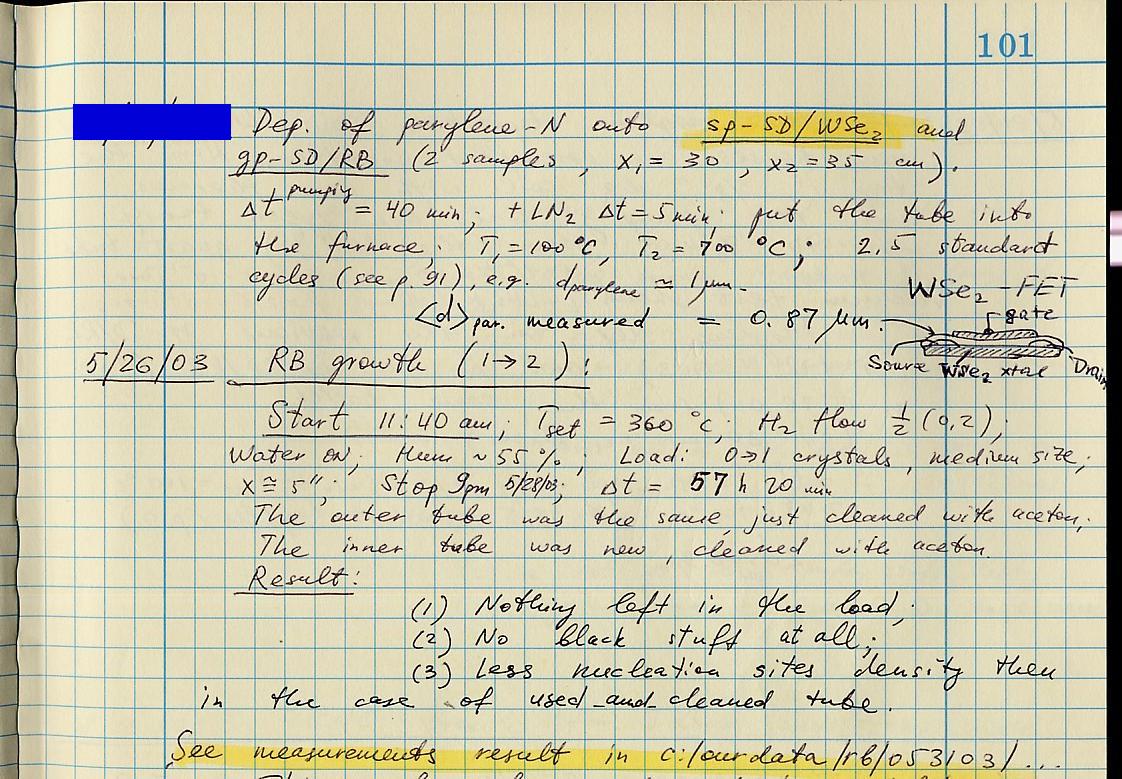 101
Dep. of parylene-N onto sp-SD/WSe₂ and
gp-SD/RB (2 samples, x₁ = 30, x₂ = 35 cm).
Δt pumping = 40 min; + LN₂ Δt = 5 min; put the tube into
the furnace; T₁ = 100 °C, T₂ = 700 °C; 2,5 standart
cycles (see p. 91), e.g. d parylene ≈ 1 μm.
WSe₂-FET
<d> par. measured = 0.87 μm.
gate
Source WSe₂ xtal Drain
5/26/03 RB growth (1→2):
Start 11:40 am; Tset = 360 °C; H₂ flow ½ (0,2);
Water ON; Hum ~55 %; Load: 0→1 crystals, medium size;
x ≅ 5"; Stop 9pm 5/28/03; Δt = 57 h 20 min
The outer tube was the same, just cleaned with aceton;
The inner tube was new, cleaned with aceton.
Result:
(1) Nothing left in the load;
(2) No black stuff at all;
(3) Less nucleation sites density then
in the case of used_and_cleaned tube.
See measurements result in c:/ourdata/rb/053103/...